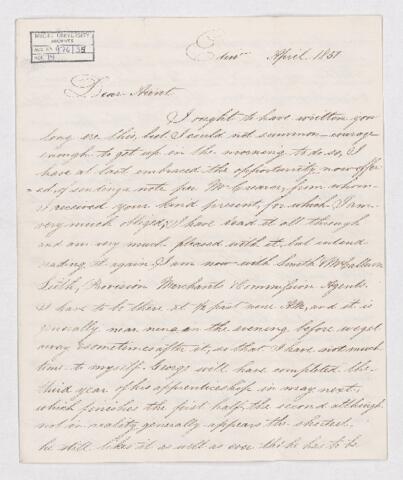 McGILL UNIVERSITY
ARCHIVES
ACC. NO. 976/35
REF. 14
Edinr April 1851
Dear Aunt,
I ought to have written you
long ere this, but I could not summon courage
enough to get up in the morning to do so, I
have at last embraced the opportunity now offer
=ed, of sending a note per Mr from whom
I received your kind present, for which I am
very much obliged, I have read it all through
and am very much pleased with it, but intend
reading it again, I am now with Smith &
Leith, Provision Merchants & Commission Agents.
I have to be there at ½ past nine AM, and it is
generally near nine in the evening before we get
away & sometimes after it, so that I have not much
time to myself. George will have completed the
third year of his apprenticeship in may next,
which finishes the first half, the second although
not in reality, generally appears the shortest,
he still likes it as well as ever tho' he has to be